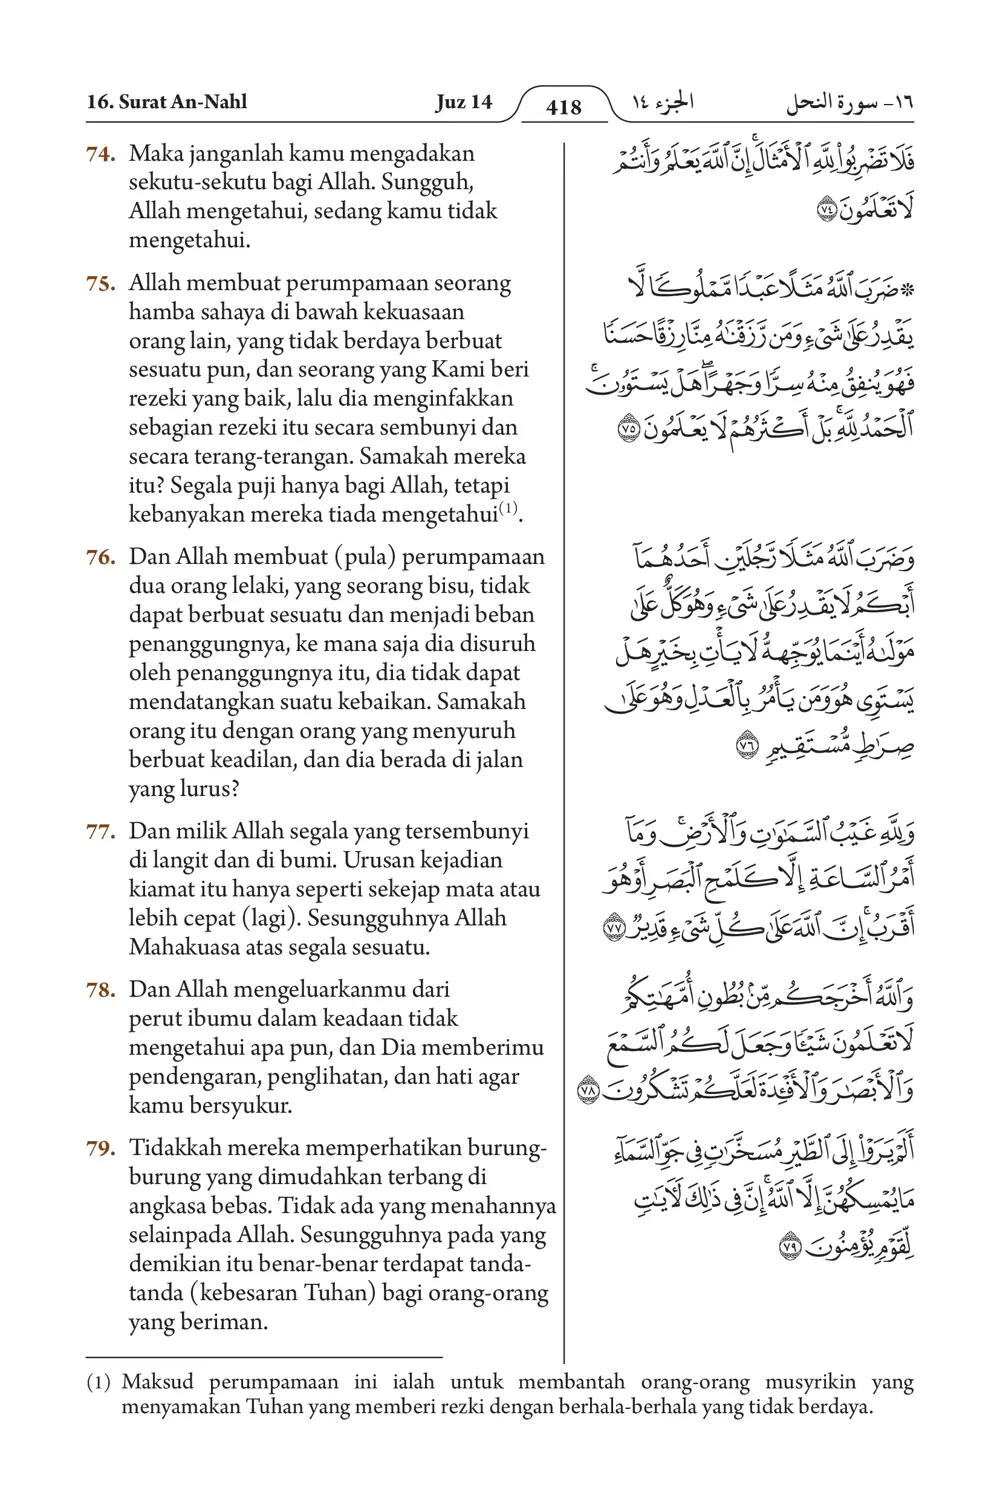 16. Surat An-Nahl
Juz 14
418
الجزء ١٤
١٦- سورة النحل
74. Maka janganlah kamu mengadakan
sekutu-sekutu bagi Allah. Sungguh,
Allah mengetahui, sedang kamu tidak
mengetahui.
75. Allah membuat perumpamaan seorang
hamba sahaya di bawah kekuasaan
orang lain, yang tidak berdaya berbuat
sesuatu pun, dan seorang yang Kami beri
rezeki yang baik, lalu dia menginfakkan
sebagian rezeki itu secara sembunyi dan
secara terang-terangan. Samakah mereka
itu? Segala puji hanya bagi Allah, tetapi
kebanyakan mereka tiada mengetahui(1).
76. Dan Allah membuat (pula) perumpamaan
dua orang lelaki, yang seorang bisu, tidak
dapat berbuat sesuatu dan menjadi beban
penanggungnya, ke mana saja dia disuruh
oleh penanggungnya itu, dia tidak dapat
mendatangkan suatu kebaikan. Samakah
orang itu dengan orang yang menyuruh
berbuat keadilan, dan dia berada di jalan
yang lurus?
77. Dan milik Allah segala yang tersembunyi
di langit dan di bumi. Urusan kejadian
kiamat itu hanya seperti sekejap mata atau
lebih cepat (lagi). Sesungguhnya Allah
Mahakuasa atas segala sesuatu.
78. Dan Allah mengeluarkanmu dari
perut ibumu dalam keadaan tidak
mengetahui apa pun, dan Dia memberimu
pendengaran, penglihatan, dan hati agar
kamu bersyukur.
79. Tidakkah mereka memperhatikan burung-
burung yang dimudahkan terbang di
angkasa bebas. Tidak ada yang menahannya
selainpada Allah. Sesungguhnya pada yang
demikian itu benar-benar terdapat tanda-
tanda (kebesaran Tuhan) bagi orang-orang
yang beriman.
فَلَا تَضْرِبُوا۟ لِلَّهِ ٱلْأَمْثَالَ ۚ إِنَّ ٱللَّهَ يَعْلَمُ وَأَنتُمْ
لَا تَعْلَمُونَ ٧٤
۞ ضَرَبَ ٱللَّهُ مَثَلًا عَبْدًا مَّمْلُوكًا لَّا
يَقْدِرُ عَلَىٰ شَىْءٍ وَمَن رَّزَقْنَٰهُ مِنَّا رِزْقًا حَسَنًا
فَهُوَ يُنفِقُ مِنْهُ سِرًّا وَجَهْرًا ۖ هَلْ يَسْتَوُۥنَ ۚ
ٱلْحَمْدُ لِلَّهِ ۚ بَلْ أَكْثَرُهُمْ لَا يَعْلَمُونَ ٧٥
وَضَرَبَ ٱللَّهُ مَثَلًا رَّجُلَيْنِ أَحَدُهُمَآ
أَبْكَمُ لَا يَقْدِرُ عَلَىٰ شَىْءٍ وَهُوَ كَلٌّ عَلَىٰ
مَوْلَىٰهُ أَيْنَمَا يُوَجِّههُّ لَا يَأْتِ بِخَيْرٍ هَلْ
يَسْتَوِى هُوَ وَمَن يَأْمُرُ بِٱلْعَدْلِ وَهُوَ عَلَىٰ
صِرَٰطٍ مُّسْتَقِيمٍ ٧٦
وَلِلَّهِ غَيْبُ ٱلسَّمَٰوَٰتِ وَٱلْأَرْضِ ۚ وَمَآ
أَمْرُ ٱلسَّاعَةِ إِلَّا كَلَمْحِ ٱلْبَصَرِ أَوْ هُوَ
أَقْرَبُ ۚ إِنَّ ٱللَّهَ عَلَىٰ كُلِّ شَىْءٍ قَدِيرٌ ٧٧
وَٱللَّهُ أَخْرَجَكُم مِّنۢ بُطُونِ أُمَّهَٰتِكُمْ
لَا تَعْلَمُونَ شَيْـًٔا وَجَعَلَ لَكُمُ ٱلسَّمْعَ
وَٱلْأَبْصَٰرَ وَٱلْأَفْـِٔدَةَ لَعَلَّكُمْ تَشْكُرُونَ ٧٨
أَلَمْ يَرَوْا۟ إِلَى ٱلطَّيْرِ مُسَخَّرَٰتٍ فِى جَوِّ ٱلسَّمَآءِ
مَا يُمْسِكُهُنَّ إِلَّا ٱللَّهُ ۗ إِنَّ فِى ذَٰلِكَ لَـَٔايَٰتٍ
لِّقَوْمٍ يُؤْمِنُونَ ٧٩
(1) Maksud perumpamaan ini ialah untuk membantah orang-orang musyrikin yang
menyamakan Tuhan yang memberi rezki dengan berhala-berhala yang tidak berdaya.